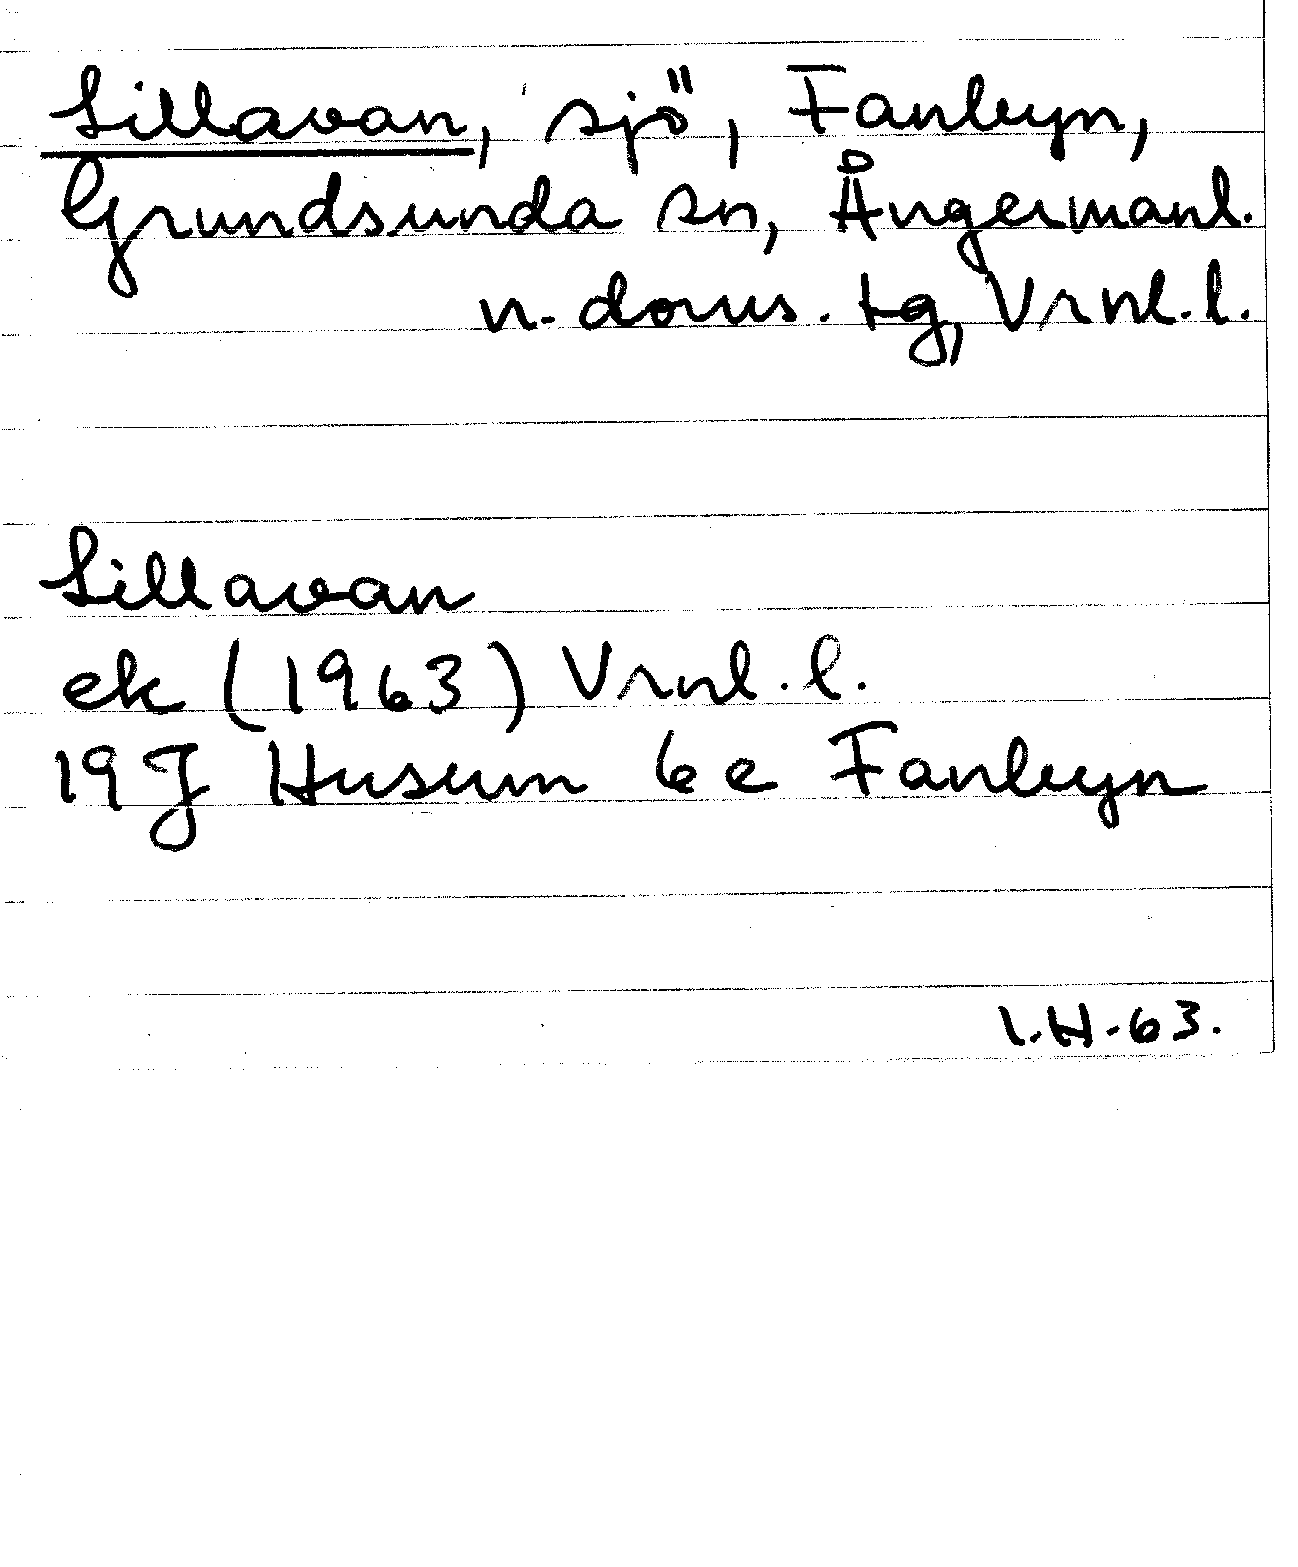 Sillavan, sjö, Fanbyn,
Grundsunda sn, Ångermanl.
n. doms. tg, Vrnl. l.
Sillavan
ek (1963) Vrnl. l.
19 J Husum 6 e Fanbyn
I.H.-63.